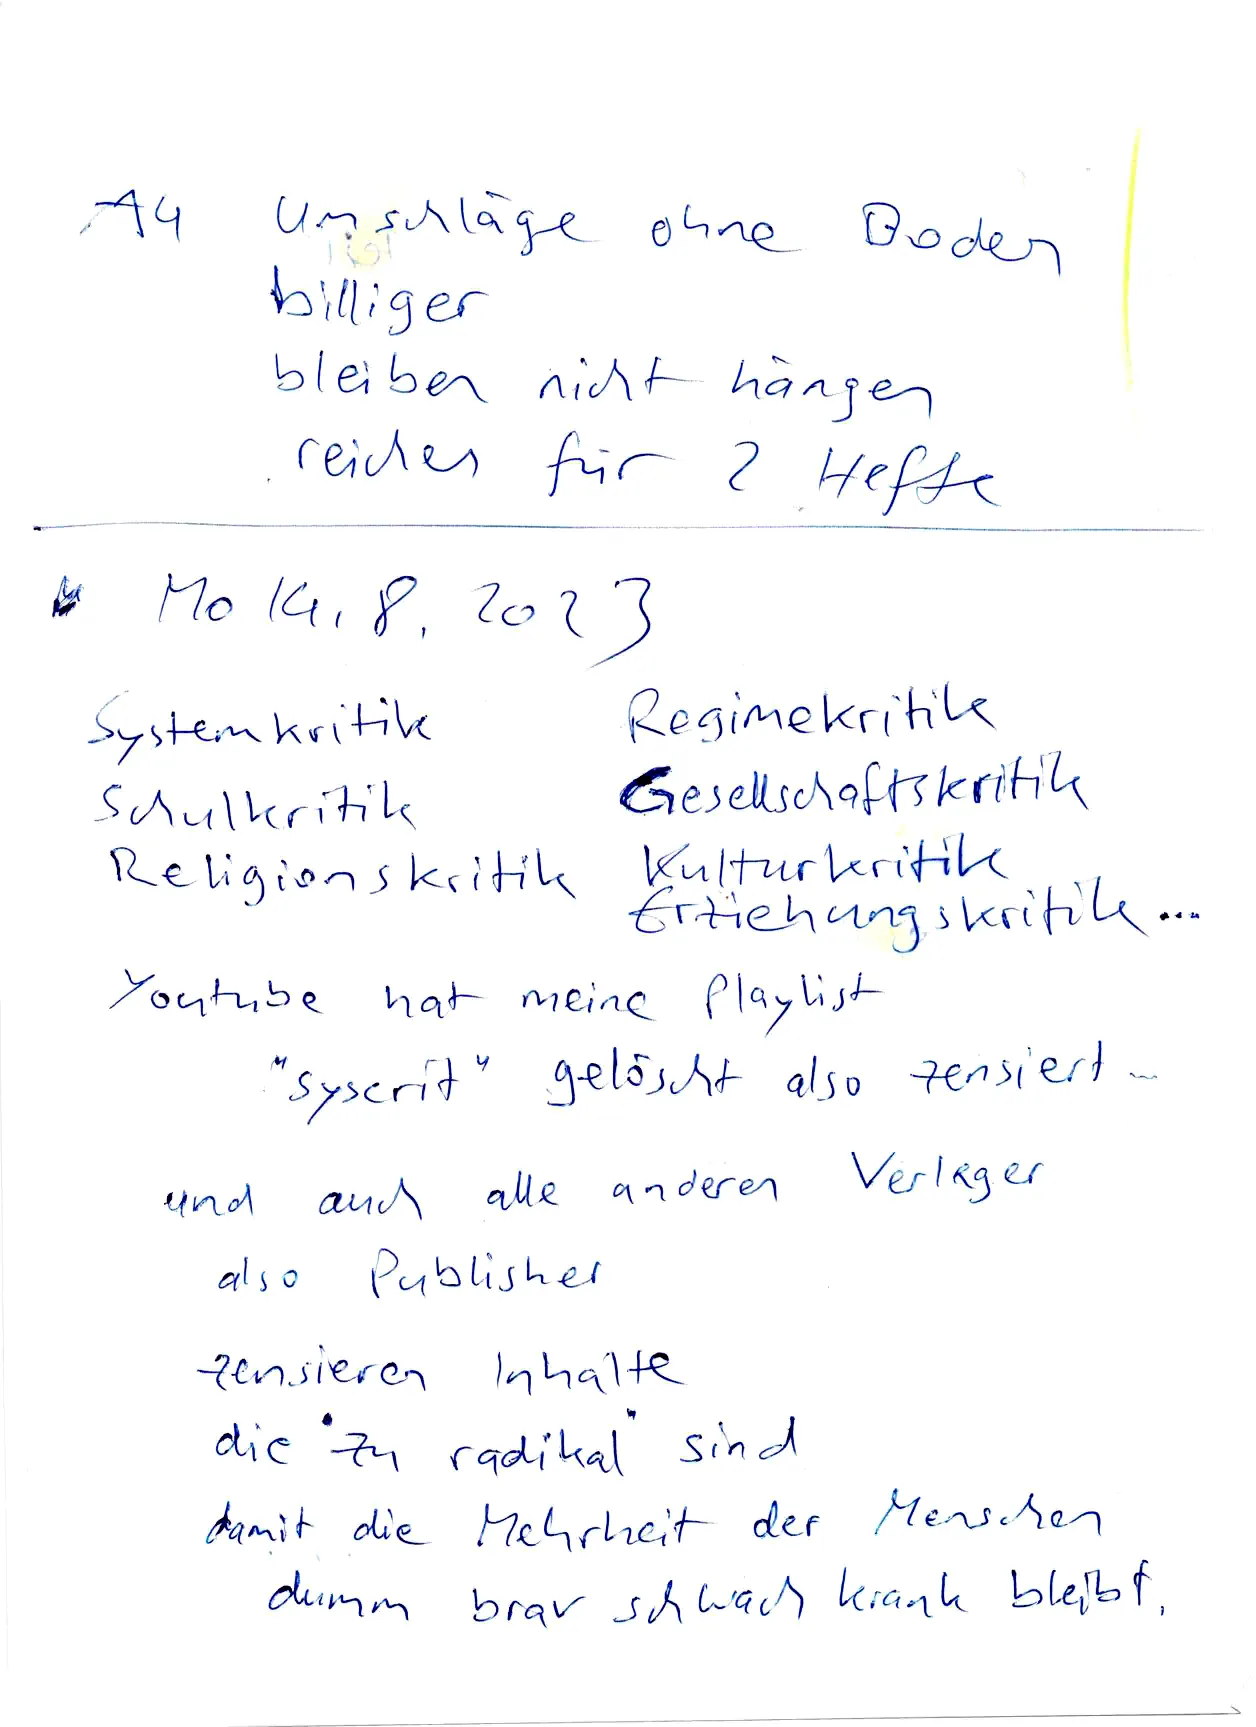 A4 Umschläge ohne Boden
billiger
bleiben nicht hängen
reichen für 2 Hefte
Mo 14.8.2023
Systemkritik Regimekritik
Schulkritik Gesellschaftskritik
Religionskritik Kulturkritik
Erziehungskritik...
Youtube hat meine Playlist
"syscrit" gelöscht also zensiert...
und auch alle anderen Verleger
also Publisher
zensieren Inhalte
die "zu radikal" sind
damit die Mehrheit der Menschen
dumm brav schwach krank bleibt.